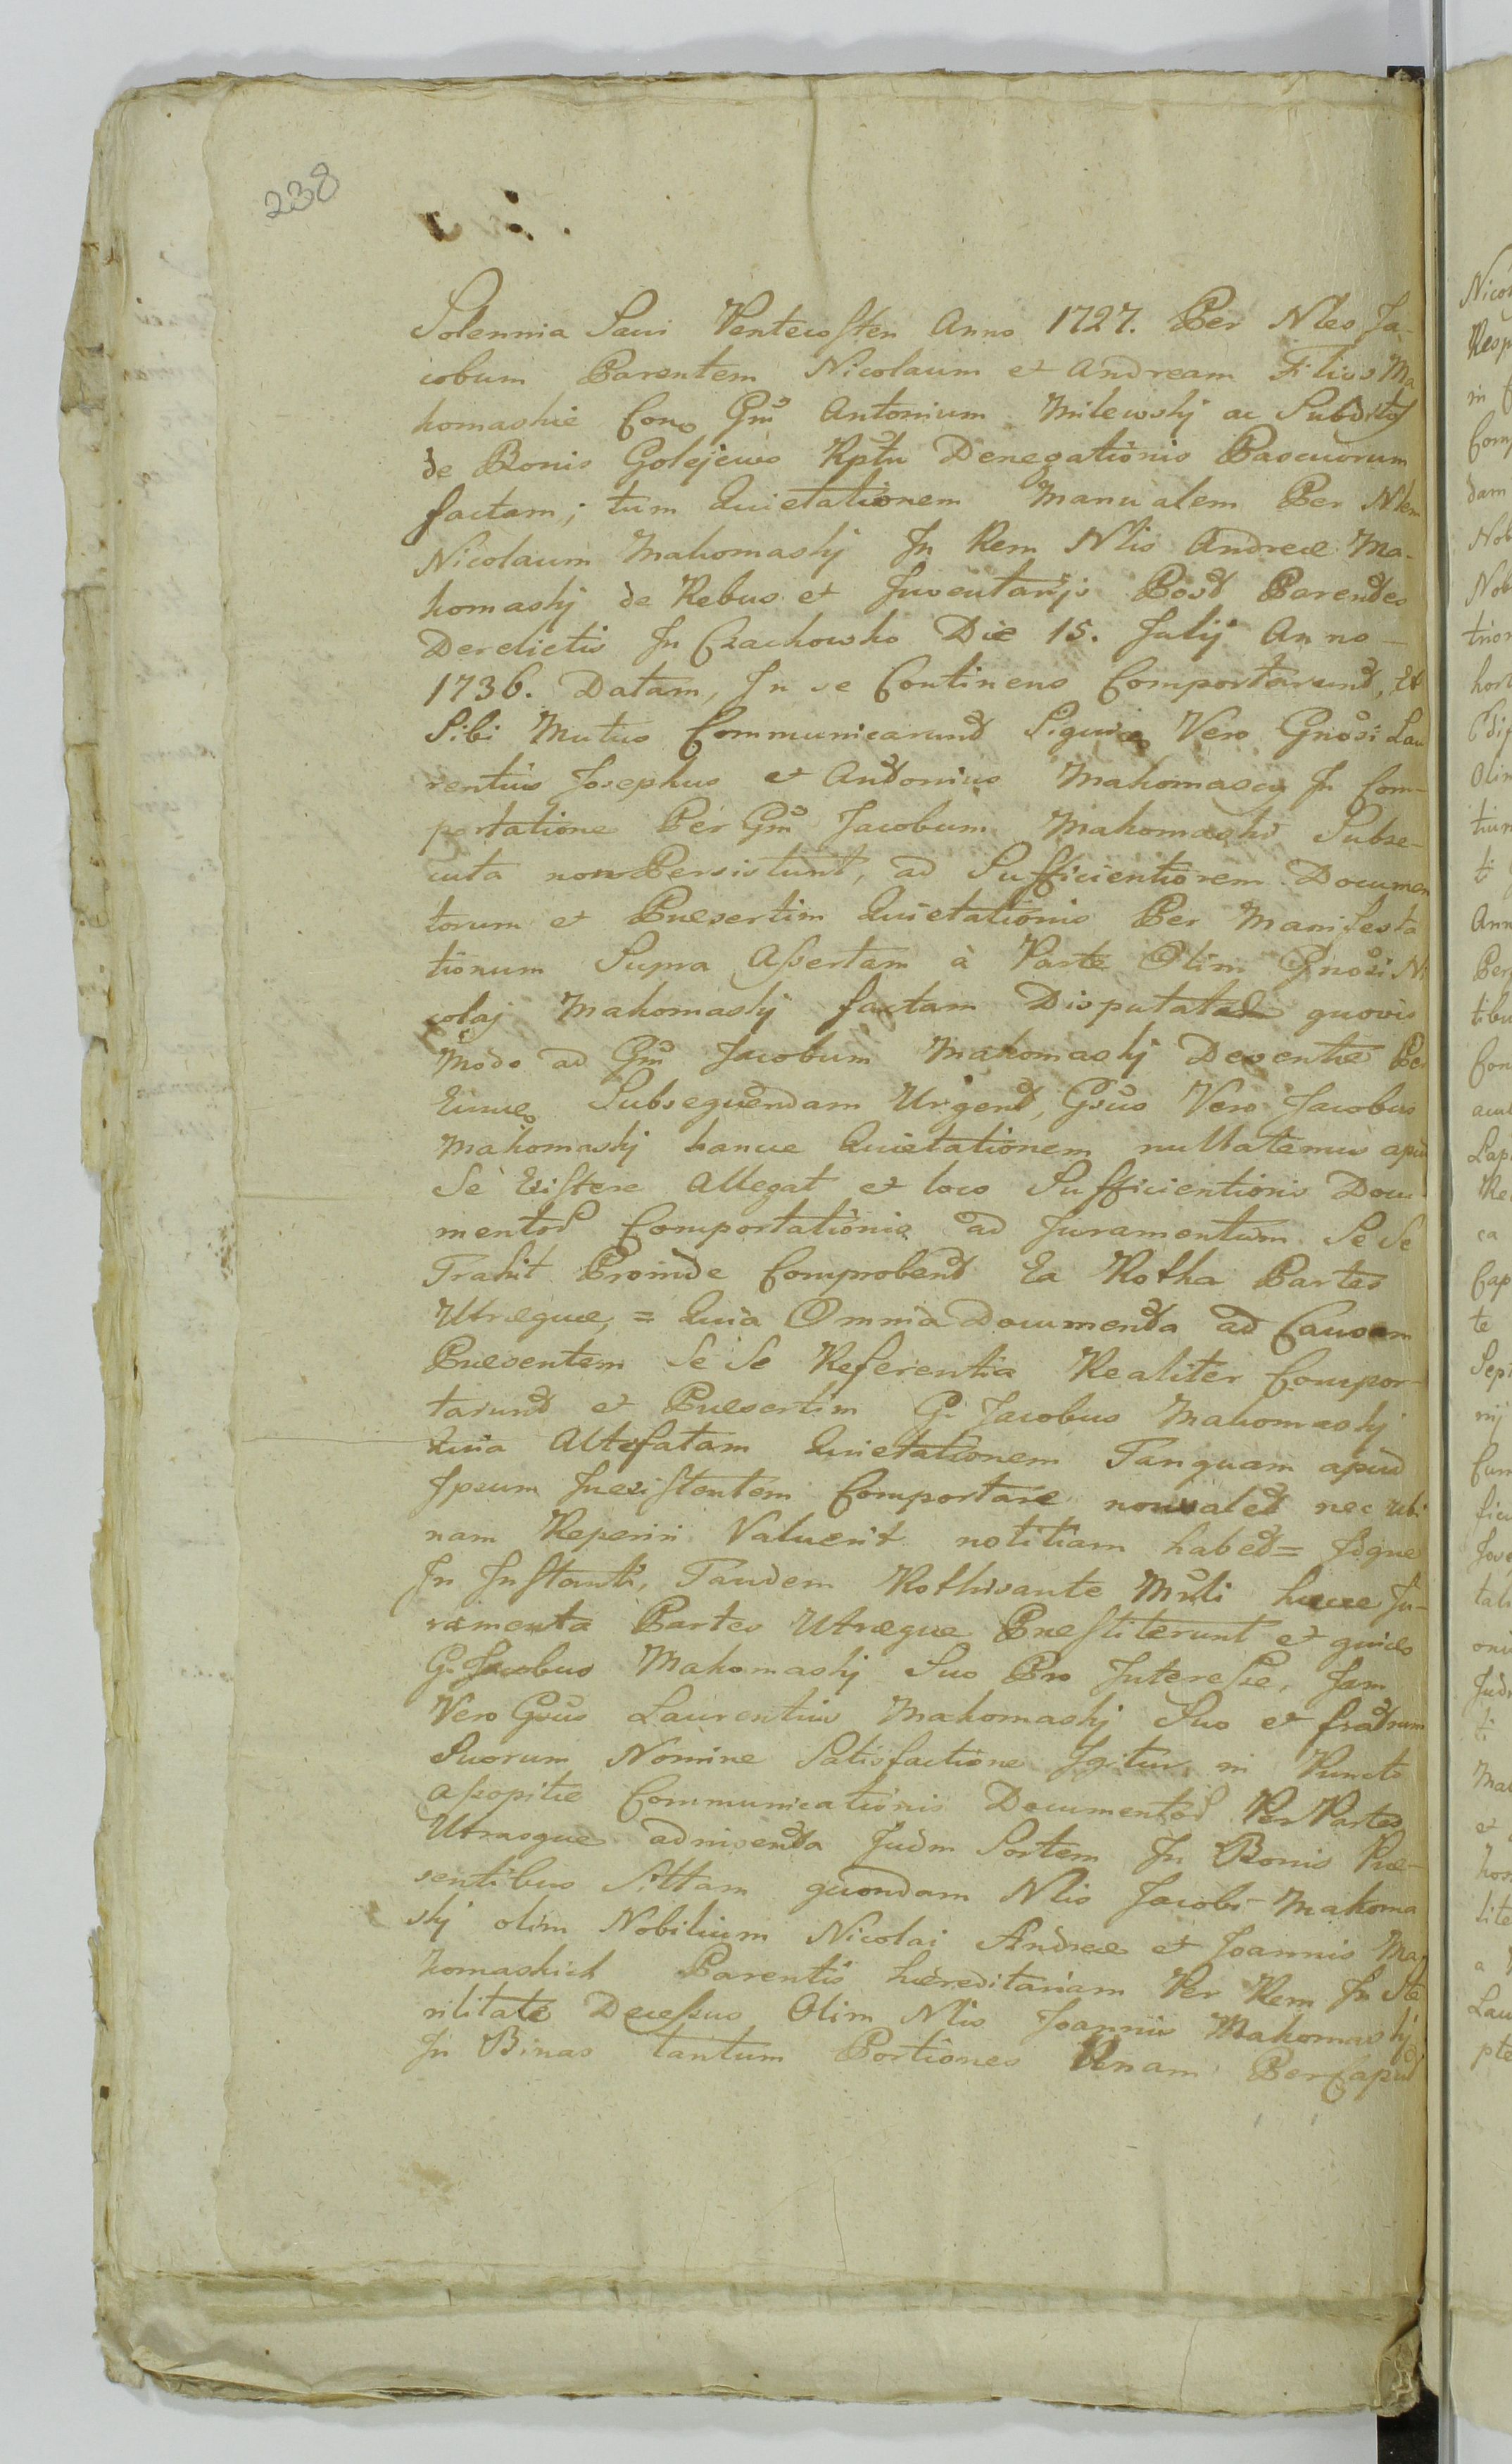 238
Solennia Sacri Pentecosten Anno 1727. Per Nles Ja-
cobum Parentem Nicolaum et Andream Filios Ma
komaskie Con Gm Antonium Milewskj ac Subditos
de Bonis Golejewo Rptu Denegationis Pascuorum
factam; tum Quietationem Manualem Per Nlem
Nicolaum Makomaskj In Rem Nlis Andreæ Ma-
komaskj de Rebus et Inventarijs Post Parentes
Derelictis In Czachowko Die 15. Julij Anno
1736. Datam, In se Continens Comportarunt, Et
Sibi Mutuo Communicarunt Siquidem Vero Gnosi Lau
rentius Josephus et Antonius Makomascy In Com-
portatione Per Gm Jacobum Makomaski Subse-
cuta non Persistunt, ad Sufficientiorem Documen
torum et Præsertim Quietationis Per Manifesta
tionum Supra Assertam à Parte Olim Gnosi Ni
colaj Makomaskj factam Disputatam quovis
Modo ad Gm Jacobum Makomaskj Deventæ Per
Eumq Subsequendam Urgent, Gsus Vero Jacobus
Makomaskj hance Quietationem nullatenus apud
Se Existere Allegat et loco Sufficientioris Docu
mentor Comportationis ad Juramentum Se Se
Trahit Proinde Comprobent Ea Rotha Partes
Utræque, = Quia Omnia Documenta ad Causam
Præsentem Se Se Referentia Realiter Compor-
tarunt et Præsertim G. Jacobus Makomaskj
Quia Altefatam Quietationem Tanquam apud
Ipsum Inexistentem Comportare non valet nec ubi
nam Reperiri Valuerit notitiam habet = Idque
In Instanti, Tandem Rothisante Mrli huce Ju-
ramenta Partes Utræque Præstiterunt et quies
G. Jacobus Makomaskj Suo Pro Interesse, Jam
Vero Gsus Laurentius Makomaskj Suo et fratrum
Suorum Nomine Satisfactione Igitur in Puncto
assopitæ Communicationis Documentor Per Partes
Utrasque admisenta Judm Sortem In Bonis Præ-
sentibus Sittam quondam Nlis Jacobi Makoma
skj olim Nobilium Nicolai Andreæ et Joannis Ma
komaskich Parentis hæreditariam Per Rem In Ste
rilitate Decessus Olim Nlis Joannis Makomaskj
In Binas tantum Portiones Unam Per Caput